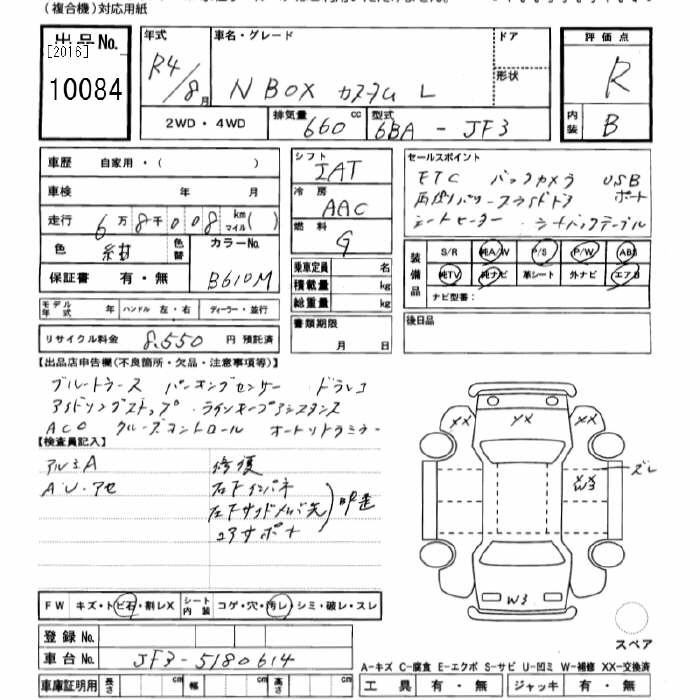 (複合機)対応用紙
出品No.
[2016]
10084
年式
R4/8月
車名・グレード
N BOX カスタム L
ドア
形状
評価点
R
内装
B
2WD・4WD
排気量 660 cc
型式 6BA - JF3
車歴 自家用・( )
車検 年 月
走行 6万8千008 km マイル( )
色 紺
色替
カラーNo. B610M
保証書 有・無
シフト IAT
冷房 AAC
燃料 G
乗車定員 名
積載量 kg
総重量 kg
セールスポイント
ETC バックカメラ USBポート
両側パワースライドドア
シートヒーター シートバックテーブル
装備品
S/R 純A/W P/S P/W ABS
純TV 純ナビ 革シート 外ナビ エアB
ナビ型番:
モデル年式 年 ハンドル 左・右 ディーラー・並行
リサイクル料金 8,550 円 預託済
書類期限 月 日
後日品
【出品店申告欄(不良箇所・欠品・注意事項等)】
ブルートゥース パーキングセンサー ドラレコ
アイドリングストップ ラインキープアシスタンス
ACC クルーズコントロール オートリトラミラー
【検査員記入】
アルミA
A・U・アセ
修復
右下インパネ
左下サイドメンバ先
コアサポート
FW キズ・トビ石・割レX
シート内装 コゲ・穴・汚レ・シミ・破レ・スレ
登録No.
車台No. JF3-5180614
車庫証明用 長さ cm 幅 cm 高さ cm
XX
XX
XX
ズレ
W3
W3
スペア
A-キズ C-腐食 E-エクボ S-サビ U-凹ミ W-補修 XX-交換済
工具 有・無 ジャッキ 有・無